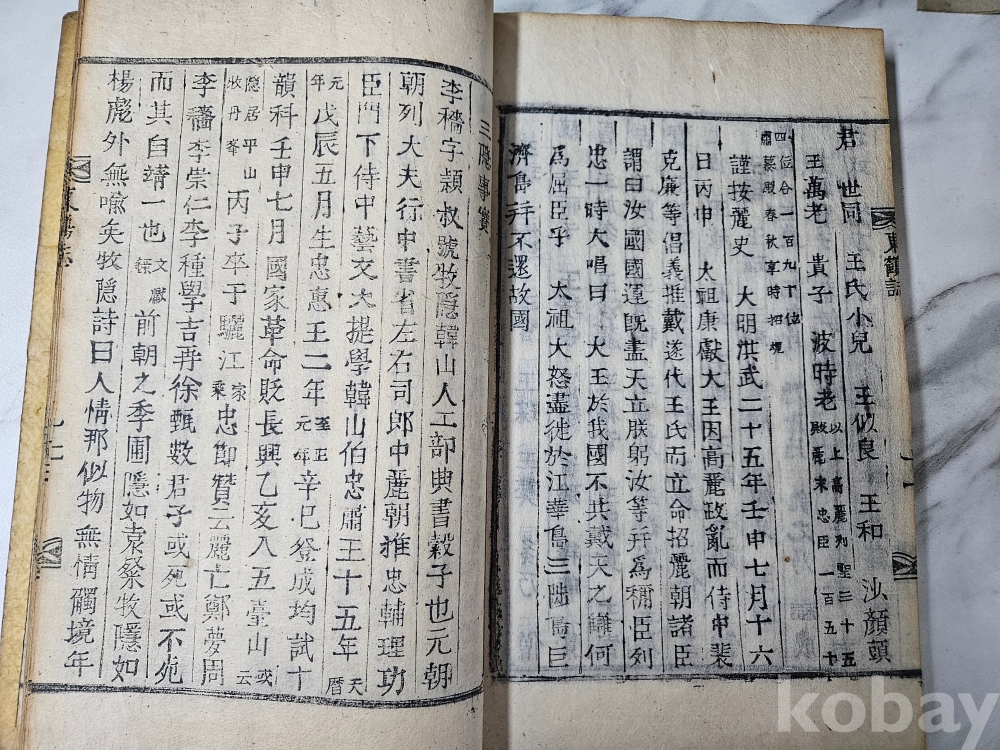 東鶴誌
君 世同 王氏小兒 王似良 王和 沙顔頭
王萬老 貴子 波時老 以上高麗列聖三十五
殿麗末忠臣一百五十
四位合一百九十位
肅慕殿春秋享時招魂
謹按麗史 大明洪武二十五年壬申七月十六
日丙申 太祖康獻大王因高麗政亂而侍中裴
克廉等倡義推戴遂代王氏而立命招麗朝諸臣
謂曰汝國國運旣盡天立朕躬汝等幷爲稱臣列
忠一時大唱曰 大王於我國不共戴天之讐何
爲屈臣乎 太祖大怒盡徙於江華島三陟島巨
濟島幷不還故國
三隱事實
李穡字穎叔號牧隱韓山人工部典書穀子也元朝
朝列大夫行中書省左右司郎中麗朝推忠輔理功
臣門下侍中藝文大提學韓山伯忠肅王十五年 天曆
元年 戊辰五月生忠惠王二年 至正元年 辛巳登成均試十
韻科壬申七月國家革命貶長興乙亥入五臺山 或云
隱居平山牧丹峯 丙子卒于驪江 家乘 忠節贊云麗亡鄭夢周
李穡李崇仁李種學吉再徐甄數君子或死或不死
而其自靖一也 文獻錄 前朝之季圃隱如袁粲牧隱如
楊彪外無喩矣牧隱詩曰人情那似物無情觸境年
東鶴誌